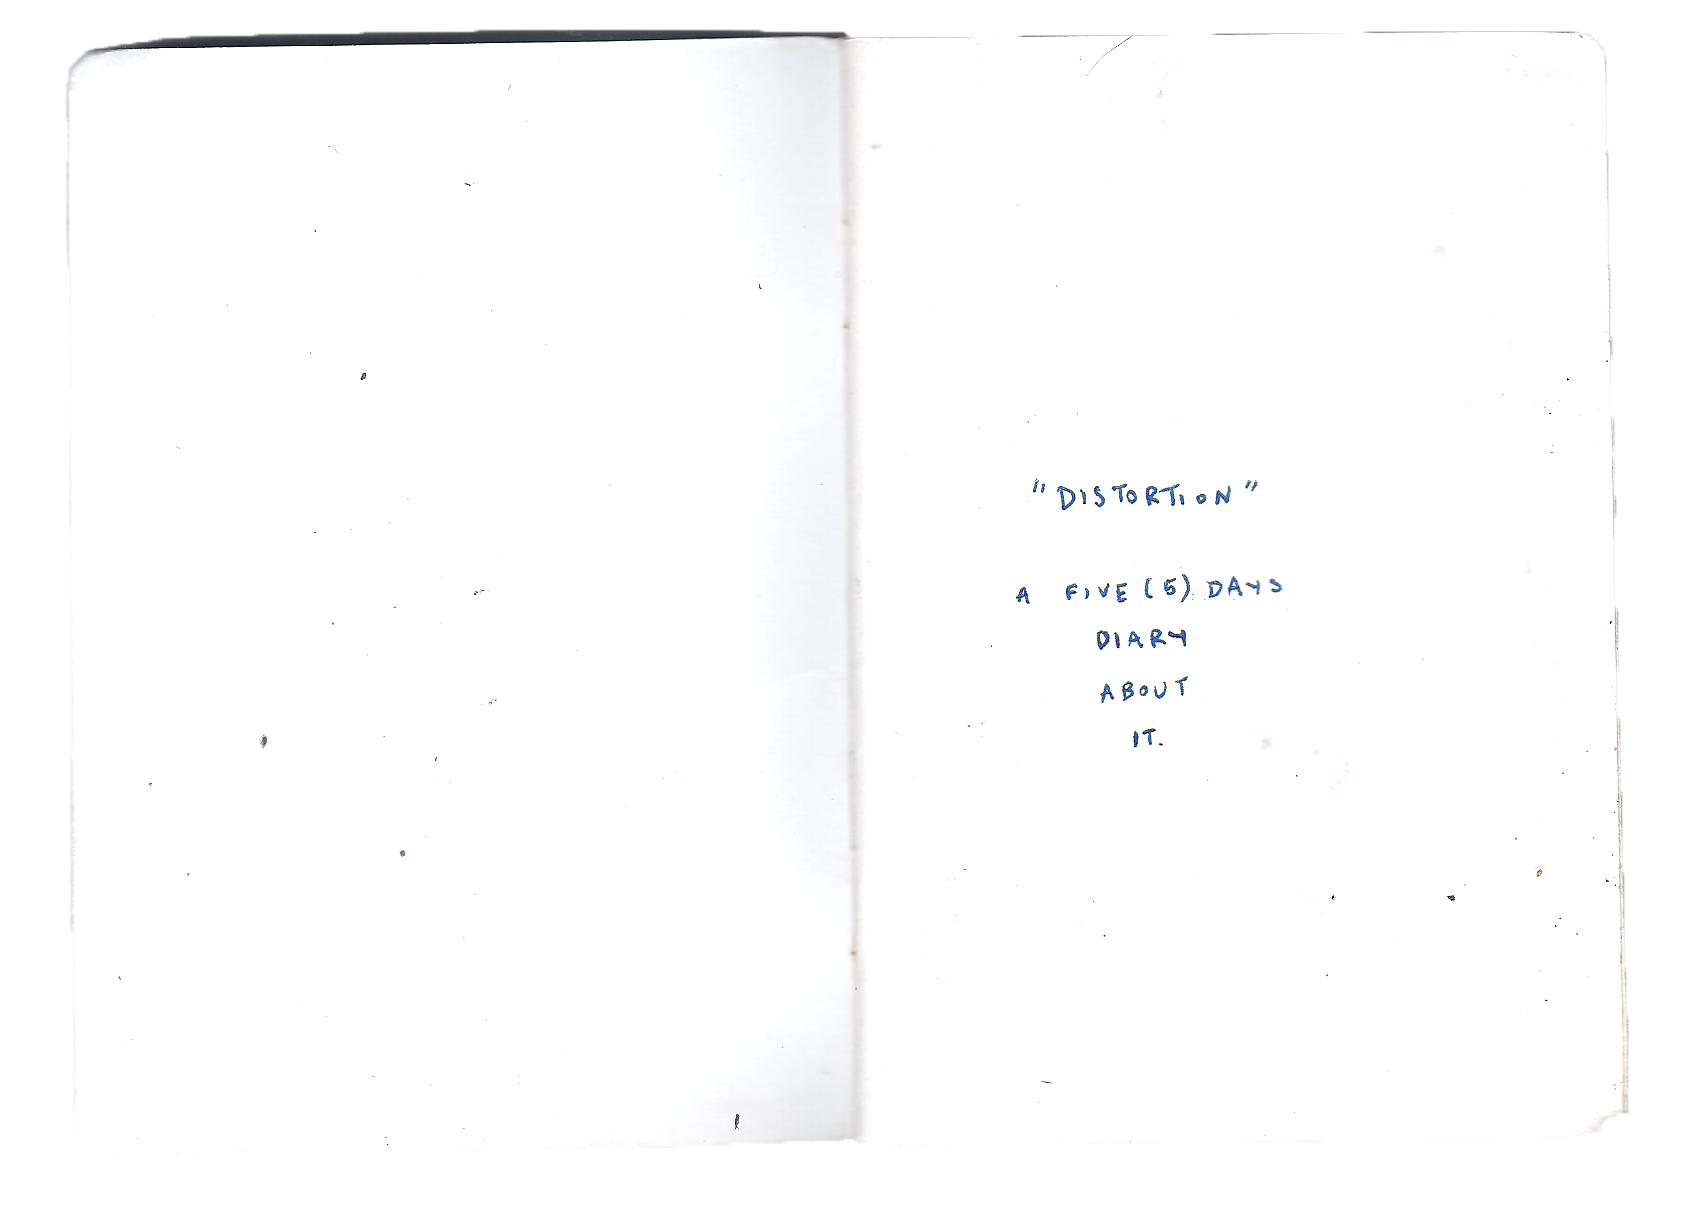 "DISTORTION"
A FIVE (5) DAYS
DIARY
ABOUT
IT.